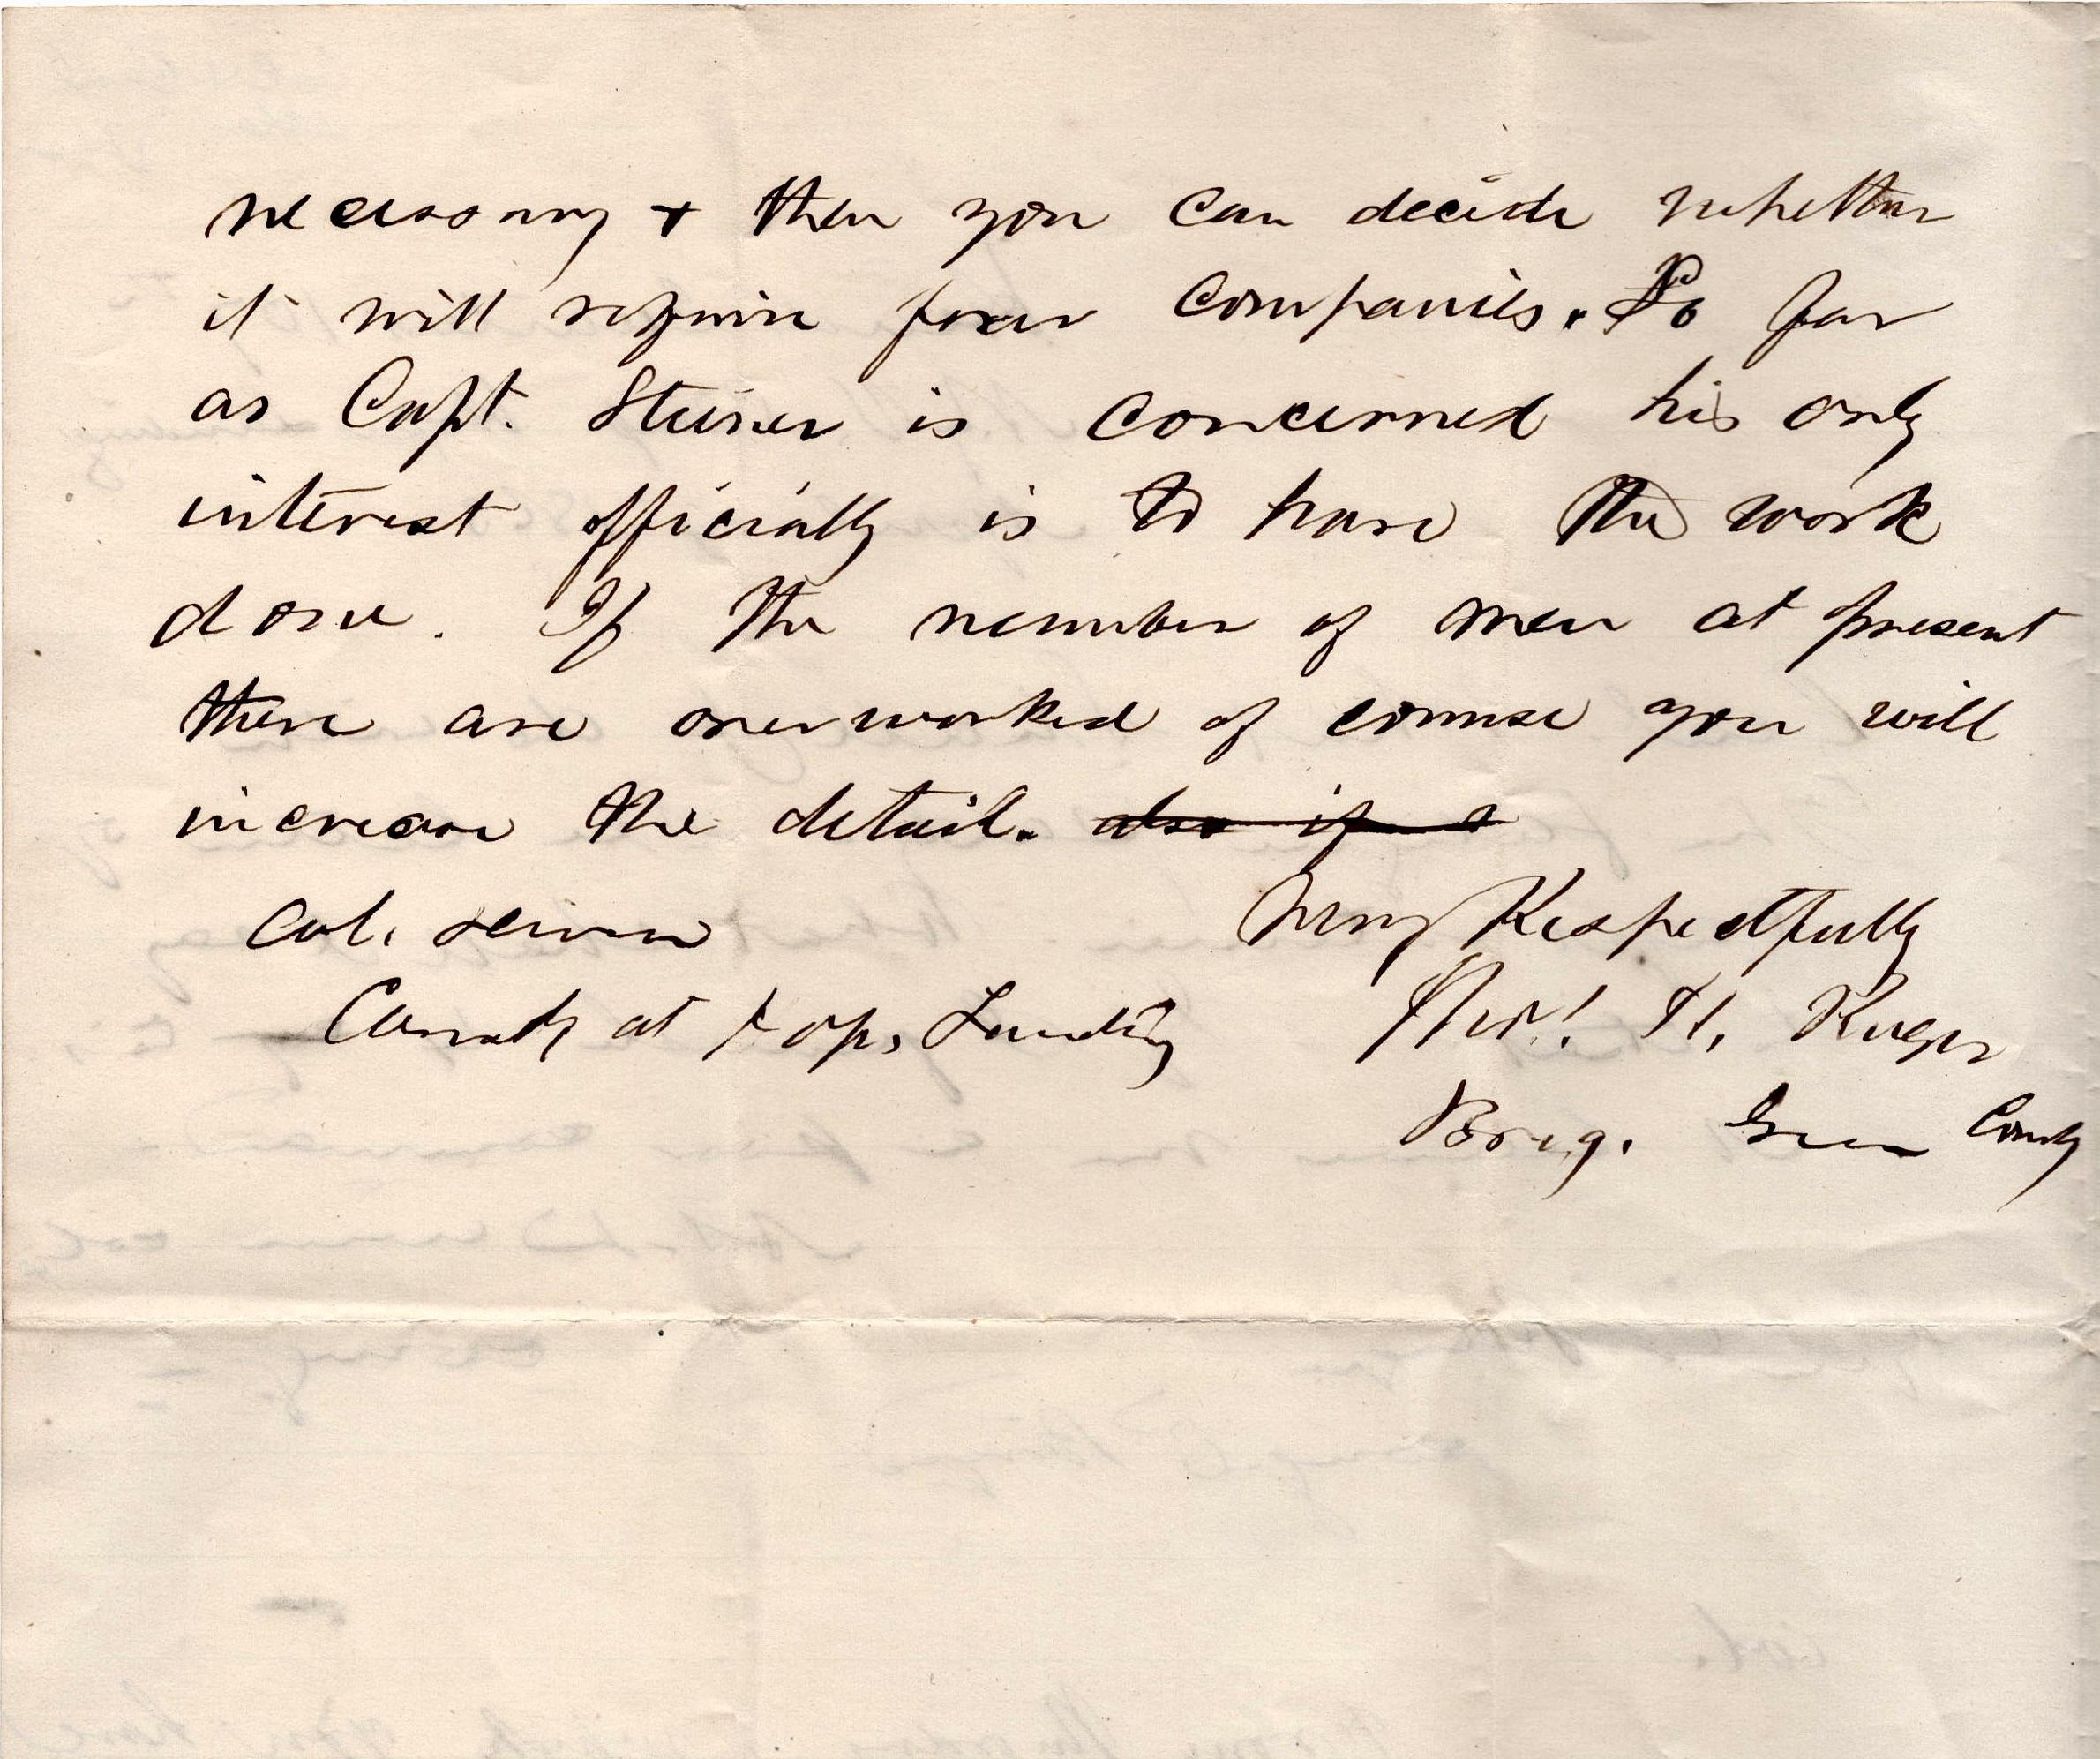 necessary + then you can decide whether
it will require four companies. So far
as Capt. Steiner is concerned his only
interest officially is to have the work
done. If the number of men at present
there are overworked of course you will
increase the detail. also if a
Col. Very Respectfully
Comdg at Hops Landing Tho! H. Ruger
Brig. Gen Comdg